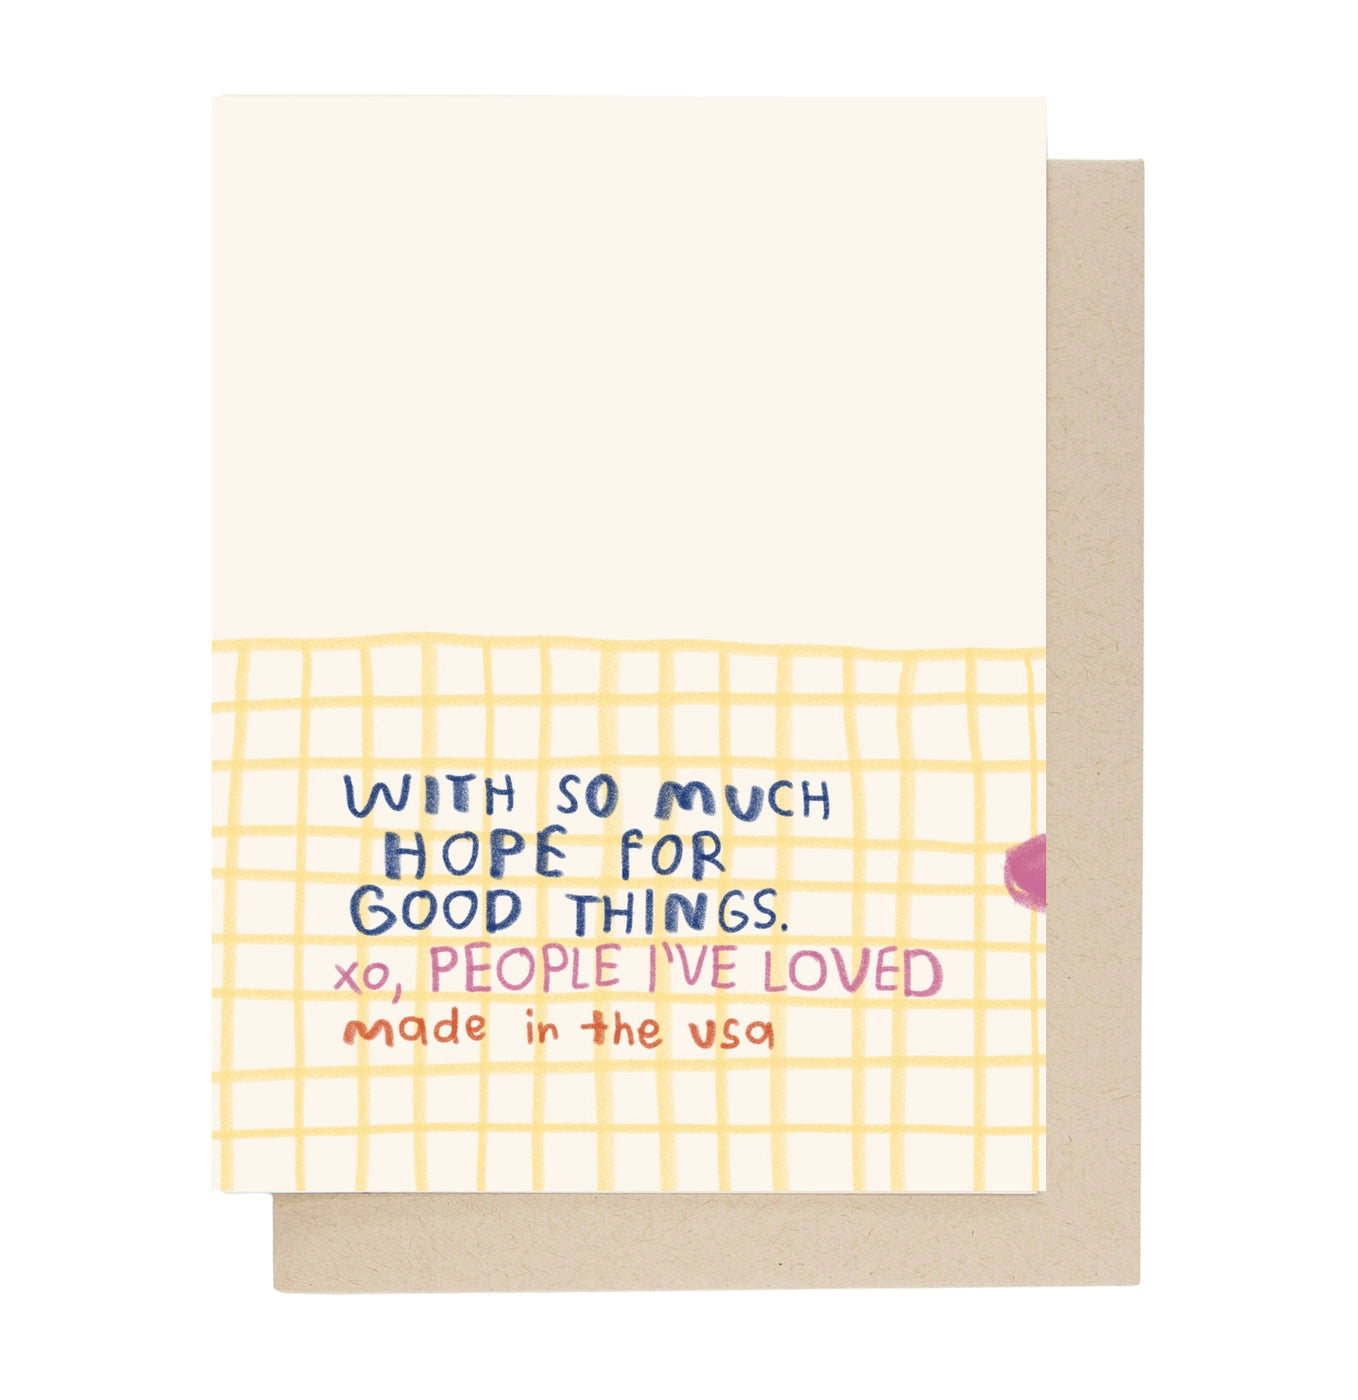 WITH SO MUCH
HOPE FOR
GOOD THINGS.
xo, PEOPLE I'VE LOVED
made in the usa